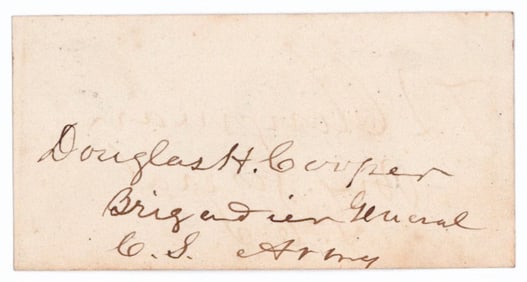 Douglas H. Cooper
Brigadier General
C. S. Army